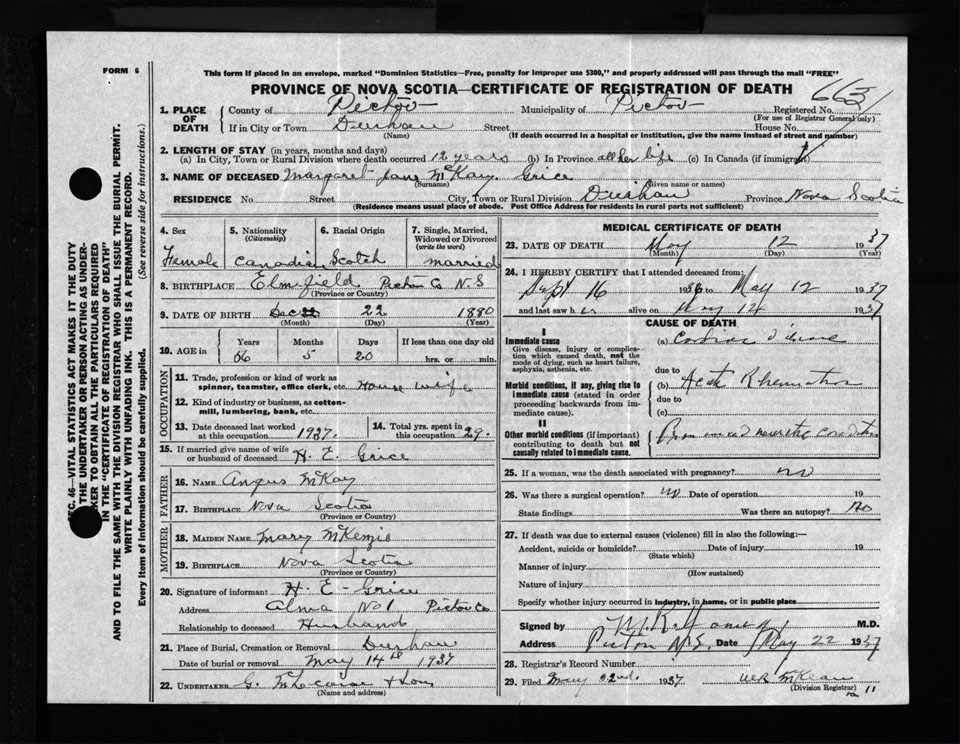 FORM 6
This form if placed in an envelope, marked "Dominion Statistics—Free, penalty for improper use $300," and properly addressed will pass through the mail "FREE"
PROVINCE OF NOVA SCOTIA—CERTIFICATE OF REGISTRATION OF DEATH
663
1. PLACE OF DEATH County of Pictou Municipality of Pictou Registered No.
(For use of Registrar General only)
If in City or Town Durham Street House No.
(Name) (If death occurred in a hospital or institution, give the name instead of street and number)
2. LENGTH OF STAY (in years, months and days)
(a) In City, Town or Rural Division where death occurred 12 years (b) In Province all her life (c) In Canada (if immigrant)
3. NAME OF DECEASED Margaret Jane McKay Grice
(Surname) (Given name or names)
RESIDENCE No. Street City, Town or Rural Division Durham Province Nova Scotia
(Residence means usual place of abode. Post Office Address for residents in rural parts not sufficient)
4. Sex 5. Nationality (Citizenship) 6. Racial Origin 7. Single, Married, Widowed or Divorced (write the word)
Female Canadian Scotch married
8. BIRTHPLACE Elmsfield Pictou Co N.S
(Province or Country)
9. DATE OF BIRTH Dec 22 1880
(Month) (Day) (Year)
10. AGE in Years Months Days If less than one day old
56 5 20 hrs. or min.
OCCUPATION
11. Trade, profession or kind of work as spinner, teamster, office clerk, etc. House wife
12. Kind of industry or business, as cotton-mill, lumbering, bank, etc.
13. Date deceased last worked at this occupation 1937. 14. Total yrs. spent in this occupation 29.
15. If married give name of wife or husband of deceased H. E. Grice
FATHER
16. NAME Angus McKay
17. BIRTHPLACE Nova Scotia
(Province or Country)
MOTHER
18. MAIDEN NAME Mary McKenzie
19. BIRTHPLACE Nova Scotia
(Province or Country)
20. Signature of informant H. E. Grice
Address Alma No 1 Pictou Co
Relationship to deceased Husband
21. Place of Burial, Cremation or Removal Durham
Date of burial or removal May 14th 1937
22. UNDERTAKER G. & Son
(Name and address)
MEDICAL CERTIFICATE OF DEATH
23. DATE OF DEATH May 12 1937
(Month) (Day) (Year)
24. I HEREBY CERTIFY that I attended deceased from:
Sept 16 1936 to May 12 1937
and last saw her alive on May 12 1937
CAUSE OF DEATH
I
Immediate cause
Give disease, injury or complication which caused death, not the mode of dying, such as heart failure, asphyxia, asthenia, etc.
(a)
due to
Morbid conditions, if any, giving rise to immediate cause (stated in order proceeding backwards from immediate cause).
(b) Acute Rheumatism
due to
(c)
II
Other morbid conditions (if important) contributing to death but not causally related to immediate cause.
25. If a woman, was the death associated with pregnancy? no
26. Was there a surgical operation? no Date of operation 19
State findings Was there an autopsy? No
27. If death was due to external causes (violence) fill in also the following:—
Accident, suicide or homicide? Date of injury 19
(State which)
Manner of injury
(How sustained)
Nature of injury
Specify whether injury occurred in industry, in home, or in public place
Signed by M.D.
Address Pictou N.S. Date May 22 1937
28. Registrar's Record Number
29. Filed May 22nd. 1937 McKean
(Division Registrar)
11
FC. 46—VITAL STATISTICS ACT MAKES IT THE DUTY
THE UNDERTAKER OR PERSON ACTING AS UNDER-
KER TO OBTAIN ALL THE PARTICULARS REQUIRED
IN THE "CERTIFICATE OF REGISTRATION OF DEATH"
AND TO FILE THE SAME WITH THE DIVISION REGISTRAR WHO SHALL ISSUE THE BURIAL PERMIT.
WRITE PLAINLY WITH UNFADING INK. THIS IS A PERMANENT RECORD.
Every item of information should be carefully supplied. (See reverse side for instructions.)